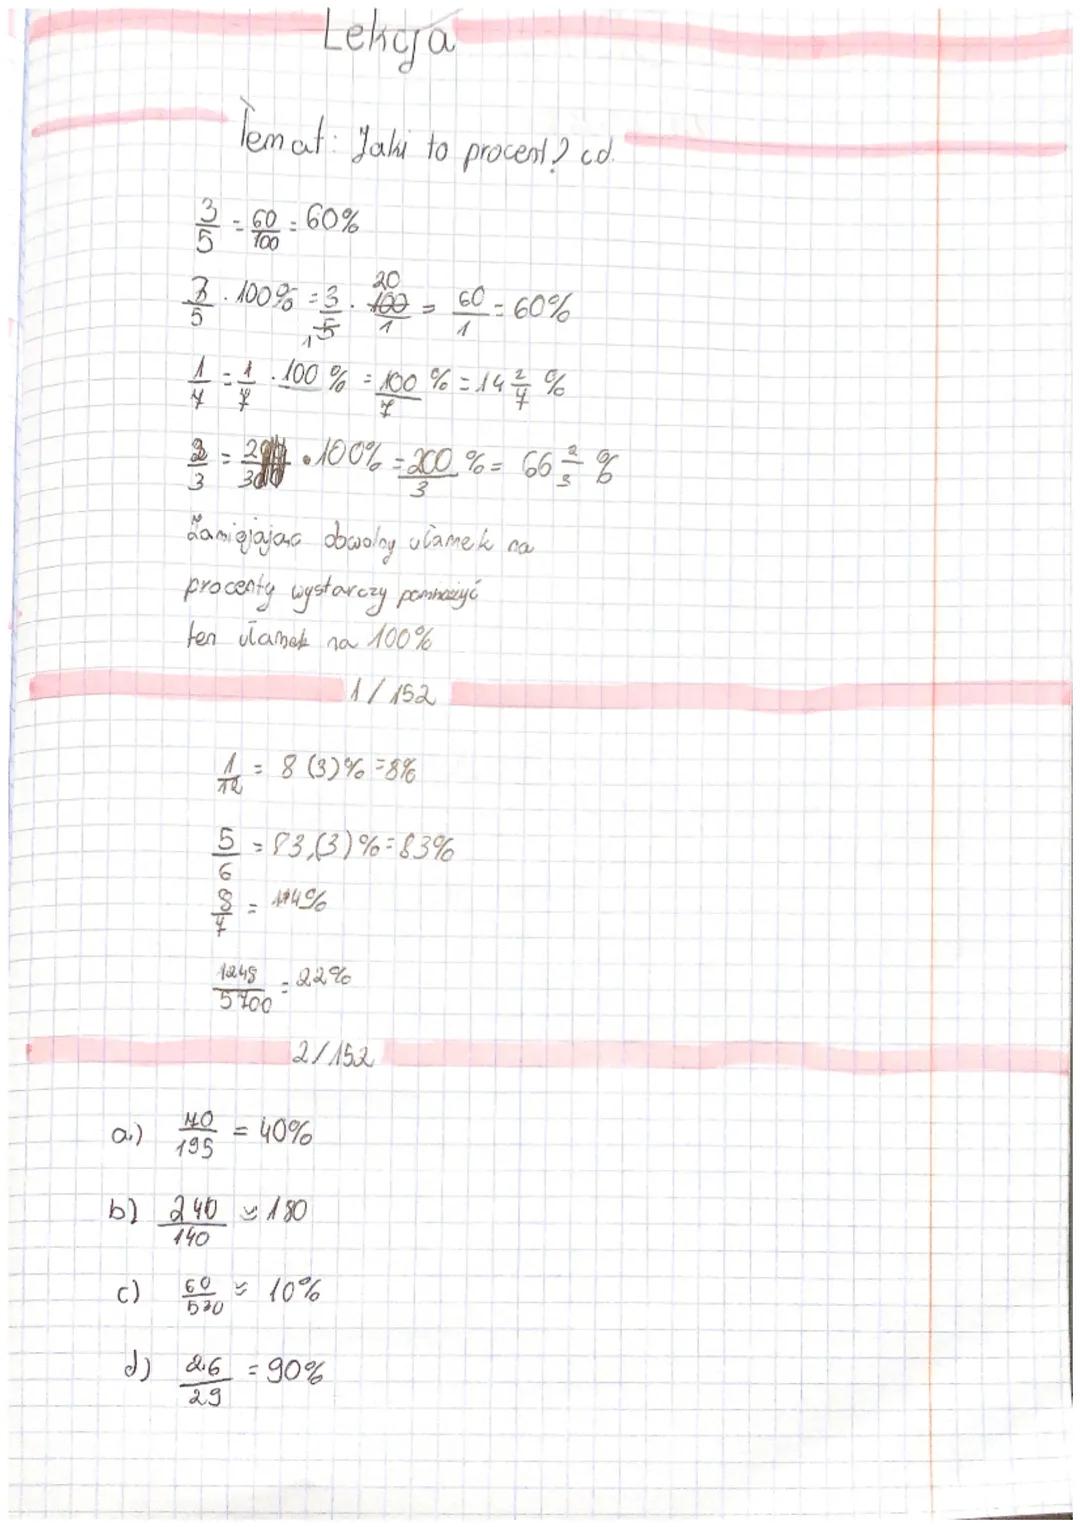 Lekcja
Temat: Jaki to procent? cd.
3/5 = 60/100 = 60%
3/5 · 100% = 3/5 · 100/1 = 60/1 = 60%
20
1
1/7 = 1/7 · 100% = 100/7 % = 14 2/7 %
2/3 = 2/3 · 100% = 200/3 % = 66 2/3 %
ułamek na
procenty wystarczy pomnożyć
ten ułamek na 100%
1/152
1/12 = 8(3)% = 8%
5/6 = 83,(3)% = 83%
8/7 = 114%
= 22%
2/152
a) /195 = 40%
b) 240/140 ≈ 180
c) 60/570 ≈ 10%
d) 26/29 = 90%